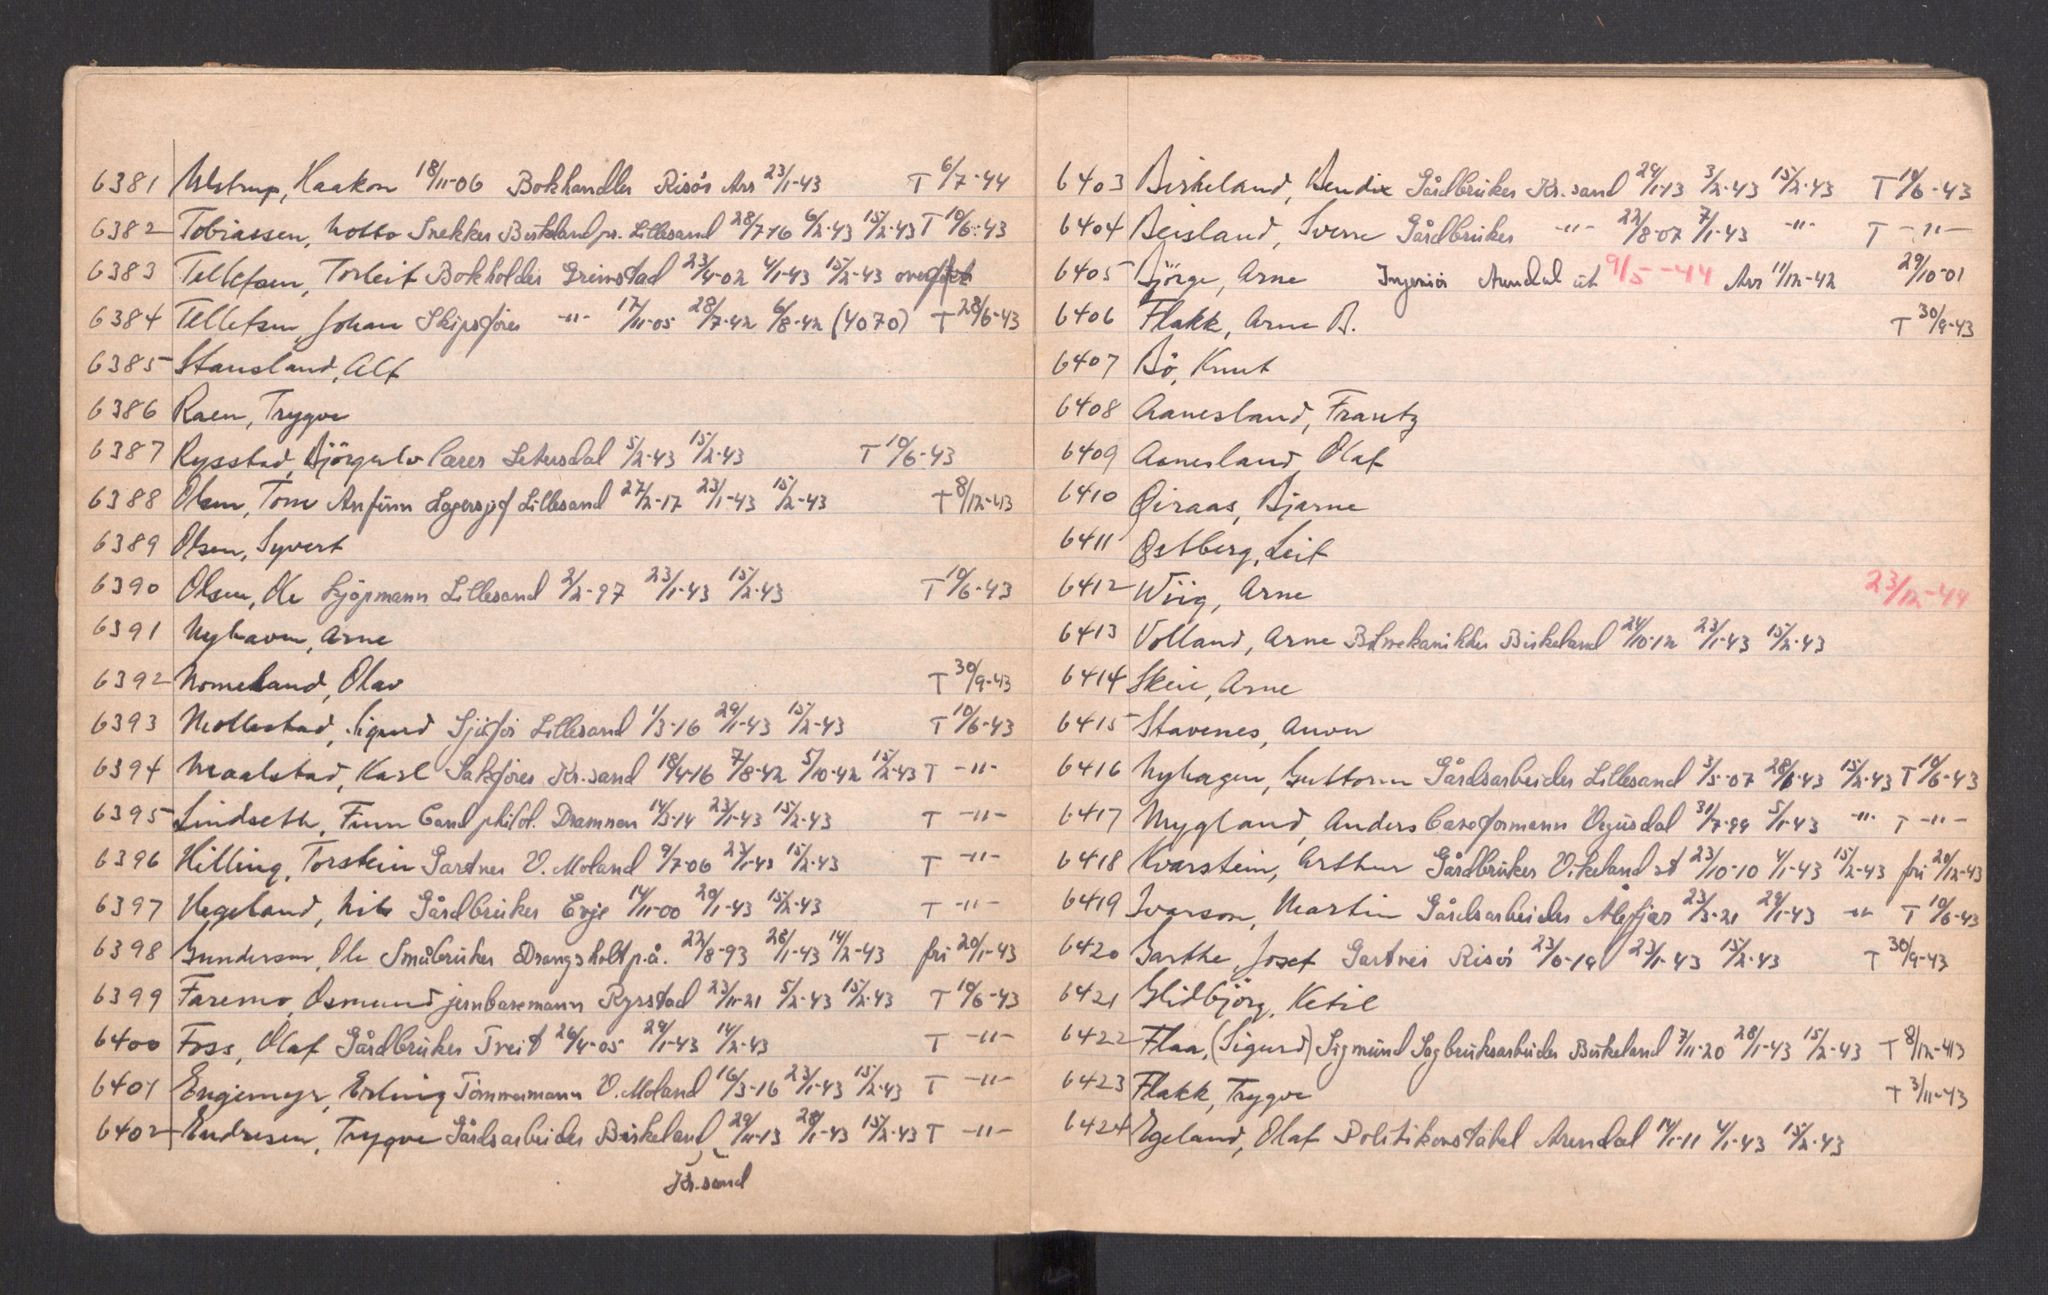 6381 Ulstrup, Haakon 18/11-06 Bokhandler Risör Arr 23/1-43 T 6/7-44
6382 Tobiassen, Notto Snekker Birkeland pr. Lillesand 28/7-16 6/2-43 15/2-43 T 10/6-43
6383 Tellefsen, Torleif Bokholder Grimstad 23/4-02 4/1-43 15/2-43
6384 Tellefsen Johan Skipsförer -"- 17/11-05 28/7-42 6/8-42 (4070) T 28/6-43
6385 Stausland, Alf
6386 Raen, Trygve
6387 Rysstad, Björgulv lærer Setesdal 5/2-43 15/2-43 T 10/6-43
6388 Olsen, Tom Anfinn Lagersjef Lillesand 27/2-17 23/1-43 15/2-43 T 8/12-43
6389 Olsen, Syvert
6390 Olsen, Ole Kjöpmann Lillesand 2/2-97 23/1-43 15/2-43 T 10/6-43
6391 Nyhaven, Arne
6392 Nomeland, Olav T 30/9-43
6393 Mollestad, Sigurd Sjåför Lillesand 1/3-16 29/1-43 15/2-43 T 10/6-43
6394 Maalstad, Karl Sakförer Kr.sand 18/4-16 7/8-42 5/10-42 15/2-43 T -"-
6395 Lindseth, Finn Cand philol. Drammen 14/3-14 23/1-43 15/2-43 T -"-
6396 Hilling, Torstein Gartner V. Moland 9/7-06 23/1-43 15/2-43 T -"-
6397 Hegeland, Nils Gårdbruker Evje 14/11-00 20/1-43 15/2-43 T -"-
6398 Gundersen, Ole Småbruker Drangsholt p.å. 22/8-93 28/1-43 14/2-43 fri 20/1-43
6399 Faremo, Osmund jernbanemann Rysstad 23/11-21 5/2-43 15/2-43 T 10/6-43
6400 Foss, Olaf Gårdbruker Treit 26/4-05 29/1-43 14/2-43 T -"-
6401 Engemyr, Erling Tömmermann V. Moland 16/3-16 23/1-43 15/2-43 T -"-
6402 Endresen, Trygve Gårdsarbeider Birkeland, 29/11-13 28/1-43 15/2-43 T -"-
Kr.sand
6403 Birkeland, Bendix Gårdbruker Kr.sand 24/1-13 3/2-43 15/2-43 T 10/6-43
6404 Beisland, Sverre Gårdbruker -"- 22/8-07 7/1-43 -"- T -"-
6405 Björge, Arne Ingeniör Arendal ut 9/5-44 Arr 11/12-42 29/10-01
6406 Flakk, Arne B. T 30/9-43
6407 Bö, Knut
6408 Aanesland, Frantz
6409 Aanesland Olaf
6410 Øiraas, Bjarne
6411 Østberg, Leif
6412 Wiig, Arne 23/12-44
6413 Volland, Arne Bilmekaniker Birkeland 24/10-12 23/1-43 15/2-43
6414 Skeie, Arne
6415 Stavenes, Anven
6416 Nyhagen, Guttorm Gårdsarbeider Lillesand 3/5-07 28/1-43 15/2-43 T 10/6-43
6417 Mygland, Anders Caseformann Vegusdal 31/7-99 5/1-43 -"- T -"-
6418 Kvarstein, Arthur Gårdbruker Vikeland st 23/10-10 4/1-43 15/2-43 fri 20/12-43
6419 Ivarson, Martin Gårdsarbeider Ålefjær 23/3-21 29/1-43 -"- T 10/6-43
6420 Garthe, Josef Gartner Risör 23/6-19 23/1-43 15/2-43 T 30/9-43
6421 Glidbjörg, Ketil
6422 Flaa, (Sigurd) Sigmund Sagbruksarbeider Birkeland 3/11-20 28/1-43 15/2-43 T 8/12-43
6423 Flakk, Trygve T 3/11-43
6424 Egeland, Olaf Politikonstabel Arendal 14/1-11 4/1-43 15/2-43